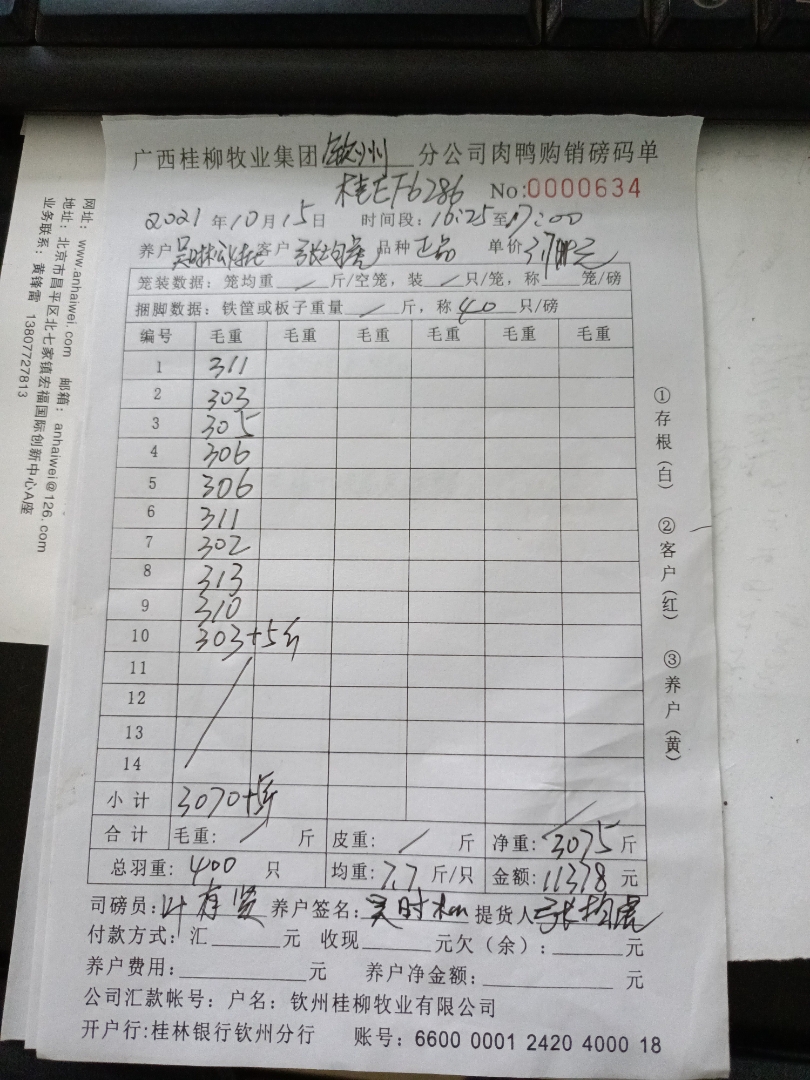 广西桂柳牧业集团钦州分公司肉鸭购销磅码单
桂EF6286 No:0000634
2021年10月15日 时间段:16:25至17:00
养户 客户 品种正品 单价3.7元
笼装数据:笼均重/斤/空笼,装/只/笼,称 笼/磅
捆脚数据:铁筐或板子重量/斤,称40只/磅
编号 毛重 毛重 毛重 毛重 毛重 毛重
1 311
2 303
3 305
4 306
5 306
6 311
7 302
8 313
9 310
10 303+5斤
11
12
13
14
小计 3070+5斤
合计 毛重:/斤 皮重:/斤 净重:3075斤
总羽重:400只 均重:7.7斤/只 金额:11378元
司磅员:叶有贤 养户签名:吴时 提货人
付款方式:汇 元 收现 元欠(余): 元
养户费用: 元 养户净金额: 元
公司汇款帐号:户名:钦州桂柳牧业有限公司
开户行:桂林银行钦州分行 账号:6600 0001 2420 4000 18
①存根(白) ②客户(红) ③养户(黄)
网址:www.anhaiwei.com 邮箱:anhaiwei@126.com
地址:北京市昌平区北七家镇宏福国际创新中心A座
业务联系:黄锋雷 13807727813